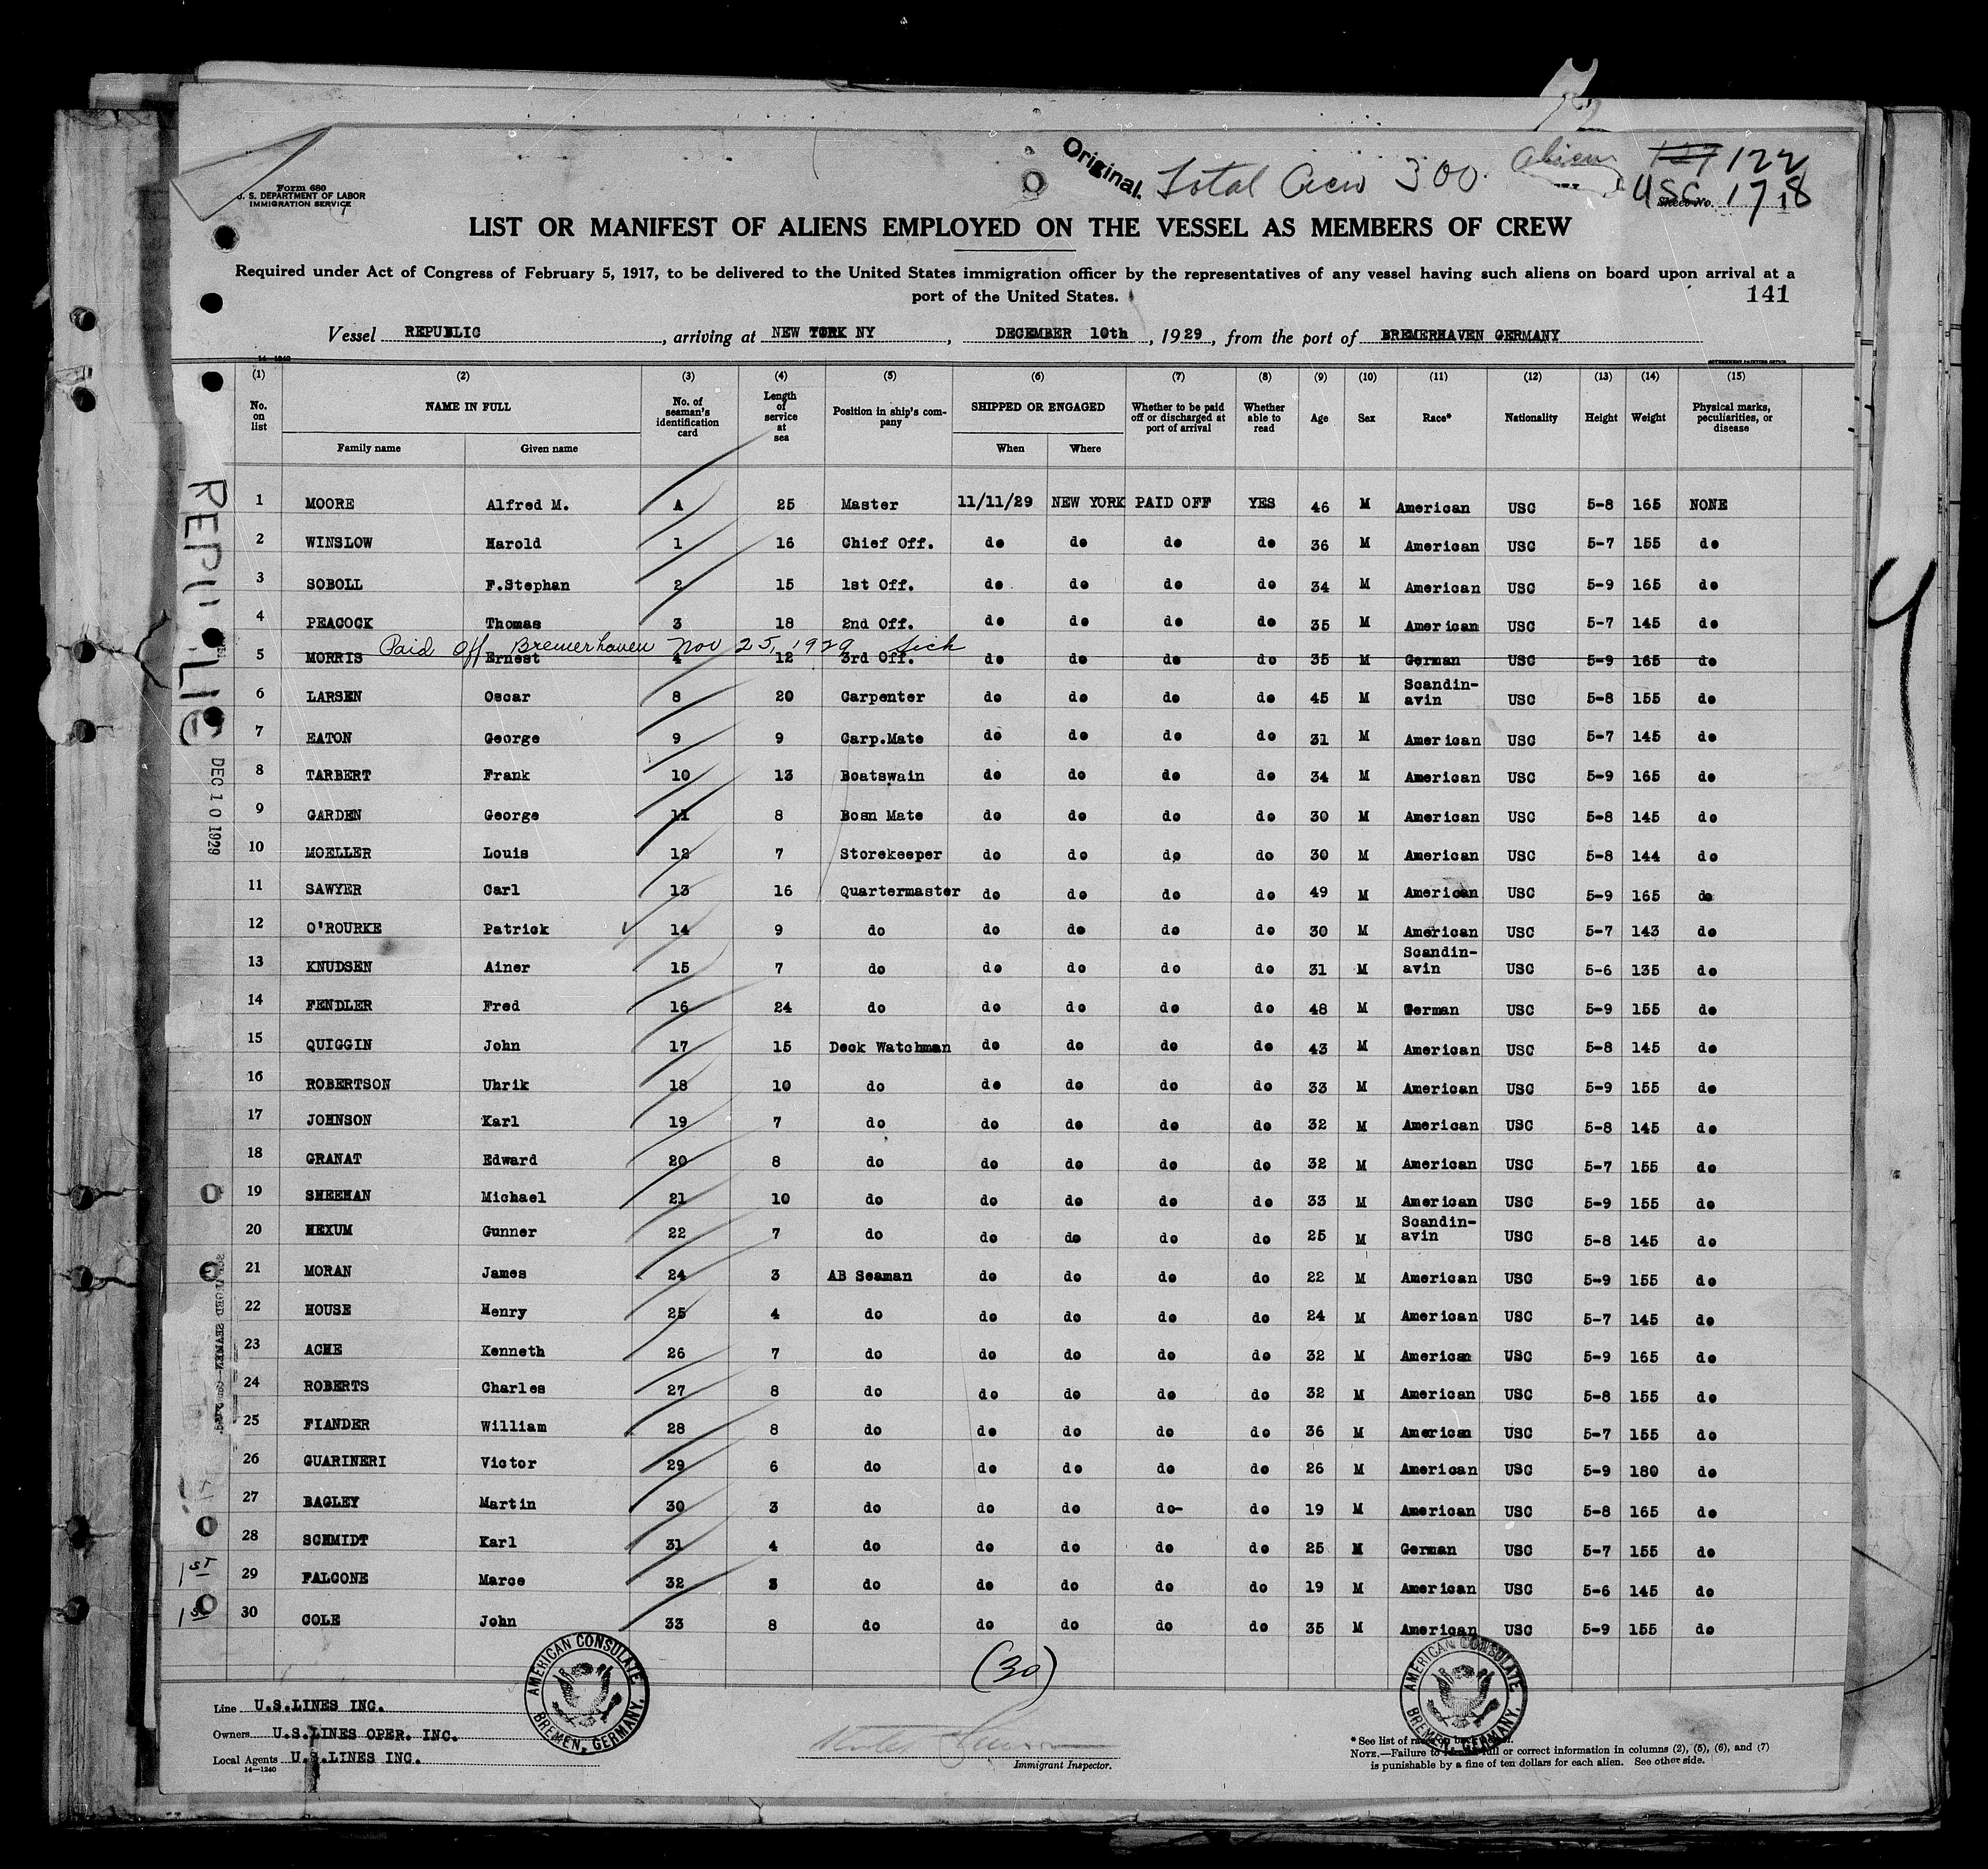 Original. Total Crew 300. Aliens 122
USC. 178
Form 680
U. S. DEPARTMENT OF LABOR
IMMIGRATION SERVICE
Sheet No. 1
LIST OR MANIFEST OF ALIENS EMPLOYED ON THE VESSEL AS MEMBERS OF CREW
Required under Act of Congress of February 5, 1917, to be delivered to the United States immigration officer by the representatives of any vessel having such aliens on board upon arrival at a
port of the United States.
141
Vessel REPUBLIC, arriving at NEW YORK NY, DECEMBER 10th, 1929, from the port of BREMERHAVEN GERMANY
14-1240
(1) (2) (3) (4) (5) (6) (7) (8) (9) (10) (11) (12) (13) (14) (15)
No. on list NAME IN FULL No. of seaman's identification card Length of service at sea Position in ship's company SHIPPED OR ENGAGED Whether to be paid off or discharged at port of arrival Whether able to read Age Sex Race* Nationality Height Weight Physical marks, peculiarities, or disease
Family name Given name When Where
1 MOORE Alfred M. A 25 Master 11/11/29 NEW YORK PAID OFF YES 46 M American USC 5-8 165 NONE
2 WINSLOW Harold 1 16 Chief Off. do do do do 36 M American USC 5-7 155 do
3 SOBOLL F.Stephan 2 15 1st Off. do do do do 34 M American USC 5-9 165 do
4 PEACOCK Thomas 3 18 2nd Off. do do do do 35 M American USC 5-7 145 do
Paid off Bremerhaven Nov 25, 1929 Sick
5 MORRIS Ernest 4 12 3rd Off. do do do do 35 M German USC 5-9 165 do
6 LARSEN Oscar 8 20 Carpenter do do do do 45 M Scandin-avin USC 5-8 155 do
7 EATON George 9 9 Carp.Mate do do do do 31 M American USC 5-7 145 do
8 TARBERT Frank 10 13 Boatswain do do do do 34 M American USC 5-9 165 do
9 GARDEN George 11 8 Bosn Mate do do do do 30 M American USC 5-8 145 do
10 MOELLER Louis 12 7 Storekeeper do do do do 30 M American USC 5-8 144 do
11 SAWYER Carl 13 16 Quartermaster do do do do 49 M American USC 5-9 165 do
12 O'ROURKE Patrick 14 9 do do do do do 30 M American USC 5-7 143 do
13 KNUDSEN Ainer 15 7 do do do do do 31 M Scandin-avin USC 5-6 135 do
14 FENDLER Fred 16 24 do do do do do 48 M German USC 5-9 155 do
15 QUIGGIN John 17 15 Deck Watchman do do do do 43 M American USC 5-8 145 do
16 ROBERTSON Uhrik 18 10 do do do do do 33 M American USC 5-9 155 do
17 JOHNSON Karl 19 7 do do do do do 32 M American USC 5-8 145 do
18 GRANAT Edward 20 8 do do do do do 32 M American USC 5-7 155 do
19 SHEEHAN Michael 21 10 do do do do do 33 M American USC 5-9 155 do
20 HEXUM Gunner 22 7 do do do do do 25 M Scandin-avin USC 5-8 145 do
21 MORAN James 24 3 AB Seaman do do do do 22 M American USC 5-9 155 do
22 HOUSE Henry 25 4 do do do do do 24 M American USC 5-7 145 do
23 ACHE Kenneth 26 7 do do do do do 32 M American USC 5-9 165 do
24 ROBERTS Charles 27 8 do do do do do 32 M American USC 5-8 155 do
25 FIANDER William 28 8 do do do do do 36 M American USC 5-7 155 do
26 GUARINERI Victor 29 6 do do do do do 26 M American USC 5-9 180 do
27 BAGLEY Martin 30 3 do do do do- do 19 M American USC 5-8 165 do
28 SCHMIDT Karl 31 4 do do do do do 25 M German USC 5-7 155 do
1st 29 FALCONE Marce 32 3 do do do do do 19 M American USC 5-6 145 do
1st 30 COLE John 33 8 do do do do do 35 M American USC 5-9 155 do
(30)
REPUBLIC
DEC 10 1929
AMERICAN CONSULATE BREMEN, GERMANY.
AMERICAN CONSULATE BREMEN, GERMANY.
Line U.S.LINES INC.
Owners U.S.LINES OPER. INC.
Local Agents U.S.LINES INC.
14-1240
Immigrant Inspector.
* See list of races on back
NOTE.—Failure to full or correct information in columns (2), (5), (6), and (7)
is punishable by a fine of ten dollars for each alien. See other side.